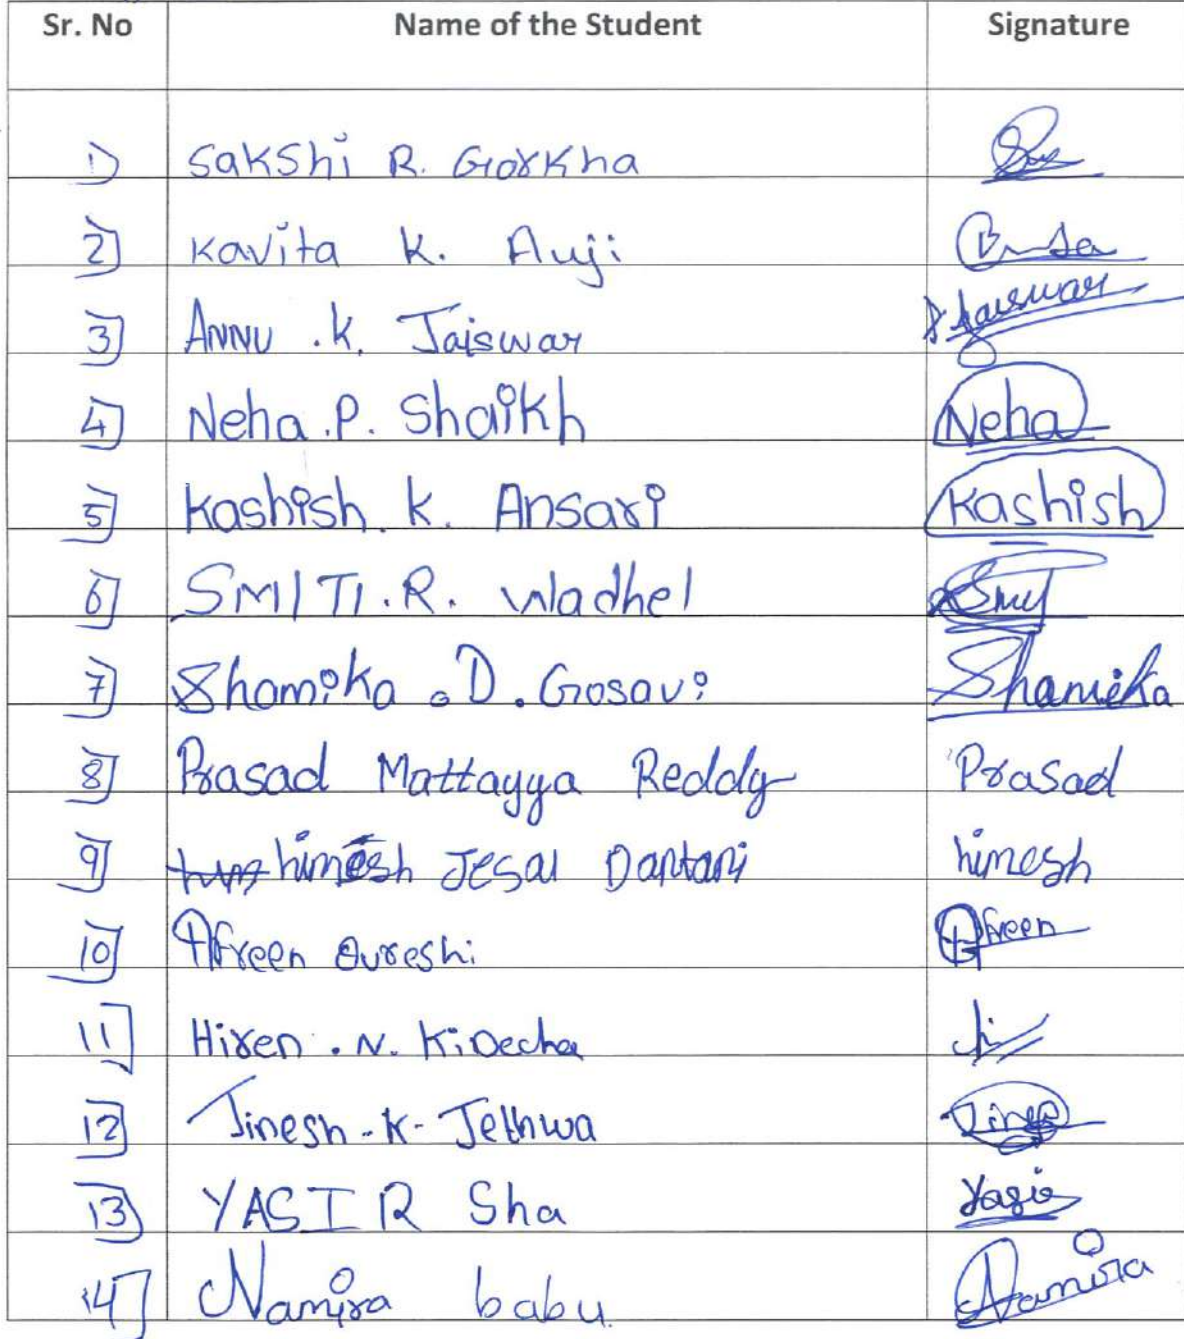 Sr. No Name of the Student Signature
1) Sakshi R. Gorkha
2) Kavita K. Auji
3) ANNU .K. Jaiswar Jaiswar
4) Neha .P. Shaikh Neha
5) Kashish. K. Ansari Kashish
6) SMITI.R. Wadhel Smit
7) Shamika .D. Gosavi Shamika
8) Prasad Mattayya Reddy Prasad
9) himesh Jesal Dantani himesh
10) Afreen Qureshi Afreen
11) Hiren .N. Kidecha
12) Jinesh-K-Jethwa Jinesh
13) YASIR Sha Yasir
14) Namira babu. Namira